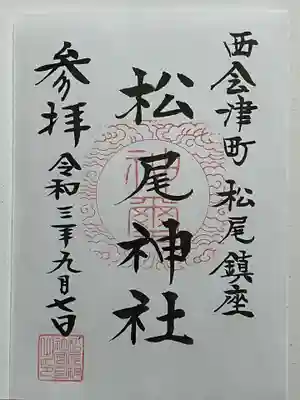 西会津町 松尾鎮座
松尾神社
参拝
令和三年九月七日